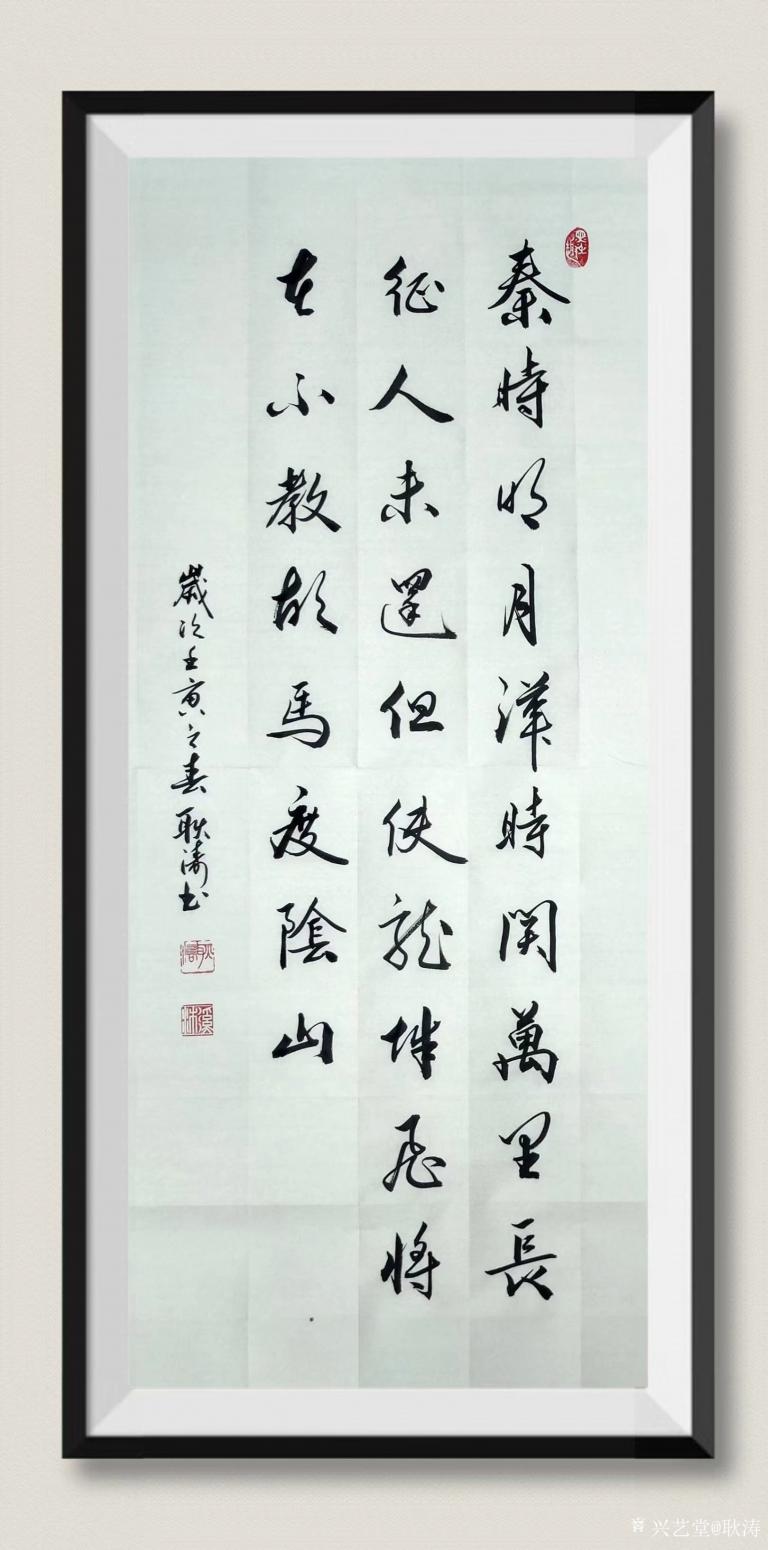 秦時明月漢時関萬里長
征人未還但使龍城飛將
在不教胡馬度陰山
歲次壬寅之春耿濤書
兴艺堂@耿涛